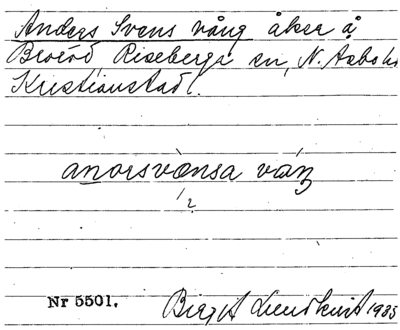 Anders Svens vång åker å
Broröd, Riseberga sn, N. Åsbo hd
Kristianstad l.
anorsvænsa váŋ
1/2
Nr 5501.
Birgit Lundkvist 1935